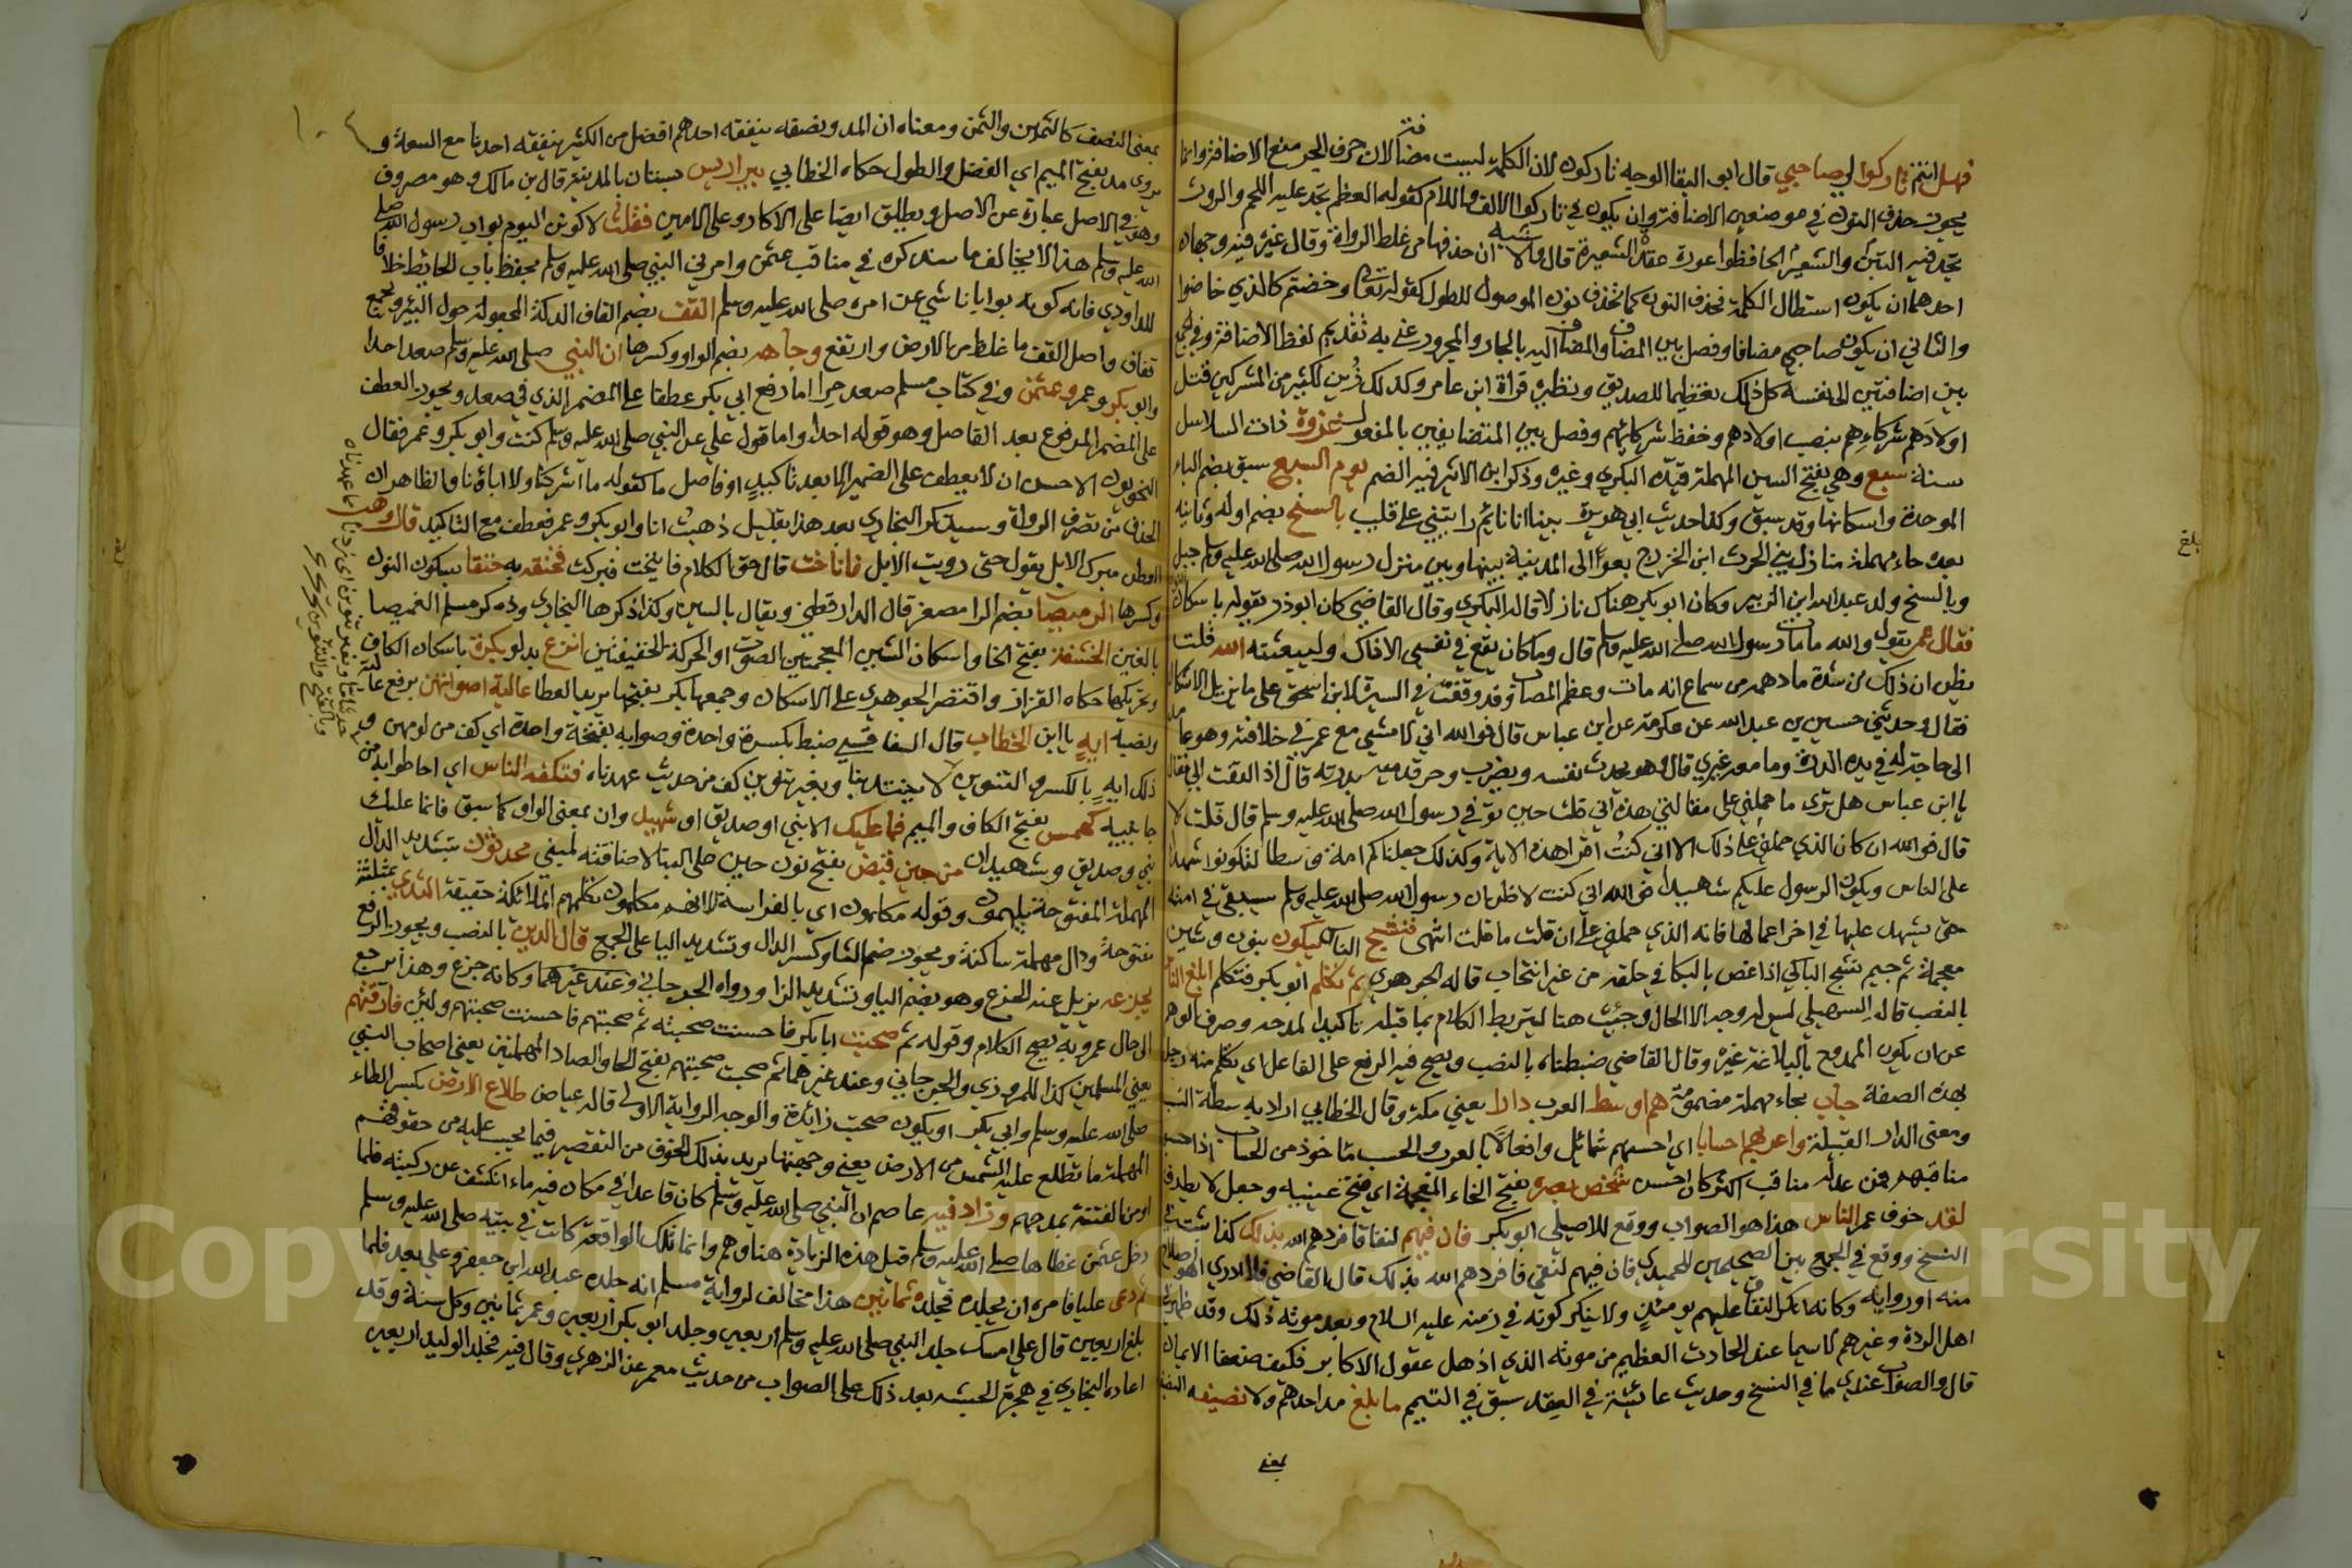 فهل انتم تاركوا لي صاحبي قال ابو البقا الوجه تاركون لان الكلمة ليست مضافة لان حرف الجر منع الاضافة وانما
يجوز حذف النون في موضعين الاضافة وان يكون في تاركوا الالف واللام كقوله
احدهما ان يكون استطال الكلمة فحذف النون كما تحذف نون الموصول للطول كقوله تعالى وخضتم كالذي خاضوا
والثاني ان يكون صاحبي مضافا وفصل بين المضاف والمضاف اليه بالجار والمجرور عناية بتقديم لفظ الاضافة وفي الجمع
بين اضافتين الى نفسه كل ذلك تعظيما للصديق ونظيره قراة ابن عامر وكذلك زين لكثير من المشركين قتل
اولادهم شركائهم بنصب اولادهم وخفض شركائهم وفصل بين المتضايفين بالمفعول غزوة ذات السلاسل
سنة سبع وهي بفتح السين المهملة قيده البكري وغيره وذكر ابن الاثير فيه الضم يوم السبع سبق بضم الباء
الموحدة واسكانها وقد سبق وكذا حديث ابي هريرة بينا انا نائم رايتني على قليب بالسنح بضم اوله وثانيه
بعده حاء مهملة منازل بني الحرث ابن الخزرج بعوالي المدينة بينها وبين منزل رسول الله صلى الله عليه وسلم ميل
وبالسنح ولد عبد الله ابن الزبير وكان ابو بكر هناك نازلا قاله البكري وقال القاضي كان ابو ذر يقوله باسكان النون
فقال عمر يقول والله ما مات رسول الله صلى الله عليه وسلم قال وما كان يقع في نفسي الا ذاك وليبعثنه الله قلت
يظن ان ذلك من شدة ما دهمه من سماع انه مات وعظم المصاب وقد وقفت في السيرة لابن اسحق على ما يزيل الاشكال
فقال وحدثني حسين بن عبد الله عن عكرمة عن ابن عباس قال فوالله اني لامشي مع عمر في خلافته وهو عامد
الى حاجة له في يده الدرة وما معه غيري قال وهو يحدث نفسه ويضرب وحر قدميه بدرته قال اذ التفت الي فقال
يا ابن عباس هل ترى ما حملني على مقالتي هذه اني قلت حين توفي رسول الله صلى الله عليه وسلم قال قلت لا
قال فوالله ان كان الذي حملني على ذلك الا اني كنت اقرا هذه الاية وكذلك جعلناكم امة وسطا لتكونوا شهداء
على الناس ويكون الرسول عليكم شهيدا فوالله اني كنت لاظن ان رسول الله صلى الله عليه وسلم سيبقى في امته
حتى يشهد عليها في اخر اعمالها فانه الذي حملني على ان قلت ما قلت انتهى فنشج الناس يبكون بنون وشين
معجمة ثم جيم نشج الباكي اذا غص بالبكا في حلقه من غير انتحاب قاله الجوهري ثم تكلم ابو بكر فتكلم ابلغ الناس
بالنصب قاله السهيلي ليس له وجه الا الحال وجئت هنا ليتربط الكلام بما قبله تاكيدا لمدحه وصرف الوهم
عن ان يكون الممدوح بالبلاغة غيره وقال القاضي ضبطناه بالنصب ويصح فيه الرفع على الفاعل اي تكلم منه رجل
بهذه الصفة حباب بحاء مهملة مضمومة هم اوسط العرب دارا يعني مكة وقال الخطابي اراد به سطة النسب
ومعنى الدار القبيلة واعربهم احسابا اي احسنهم شمائل وافعالا بالعرب والحسب ماخوذ من الحساب اذا حسبوا
مناقبهم فمن عد له مناقب اكثر كان احسب شخص بصره بفتح الخاء المعجمة اي فتح عينيه وجعل لا يطرف
لقد خوف عمر الناس هذا هو الصواب ووقع للاصيلي ابو بكر فان فيهم لنفاقا فردهم الله بذلك كذا ثبت في
النسخ ووقع في الجمع بين الصحيحين للحميدي فان فيهم لتقى فردهم الله بذلك قال القاضي فلا ادري اهو اصلاح
منه او رواية وكانه انكر النفاق عليهم يومئذ ولا ينكر كونه في زمنه عليه السلام وبعد موته ذلك وقد ظهر في
اهل الردة وغيرهم لا سيما عند الحادث العظيم من موته الذي اذهل عقول الاكابر فكيف ضعفا الايمان
قال والصواب عندي ما في النسخ وحديث عائشة في العقد سبق في التيمم ما بلغ مد احدهم ولا نصيفه النصيف
بمعنى
بلغ
بمعنى النصف كالثمين والثمن ومعناه ان المد ونصفه ينفقه احدهم افضل من الكثير ينفقه احدنا مع السعة و
يروى مد بفتح الميم اي الفضل والطول حكاه الخطابي بير اريس بستان بالمدينة قال بن مالك وهو مصروف
وهو في الاصل عبارة عن الاصل ويطلق ايضا على الاكار وعلى الامير فقلت لاكونن اليوم بواب رسول الله صلى
الله عليه وسلم هذا لا يخالف ما سنذكره في مناقب عثمن وامرني النبي صلى الله عليه وسلم بحفظ باب الحائط خلافا
للداودي فانه كونه بوابا ناشي عن امره صلى الله عليه وسلم القف بضم القاف الدكة المجعولة حول البير ويجمع
قفاف واصل القف ما غلظ من الارض وارتفع وجاهه بضم الواو وكسرها ان النبي صلى الله عليه وسلم صعد احدا
وابو بكر وعمر وعثمن وفي كتاب مسلم صعد حرا اما رفع ابي بكر عطفا على المضمر الذي في صعد ويجوز العطف
على المضمر المرفوع بعد الفاصل وهو قوله احدا واما قول علي عن النبي صلى الله عليه وسلم كنت وابو بكر وعمر فقال
النحويون الاحسن ان لا يعطف على الضمير الا بعد تاكيد او فاصل ما كقوله ما اشركنا ولا اباؤنا والظاهر ان
الحذف من تصرف الرواة وسيذكر البخاري بعد هذا بقليل ذهبت انا وابو بكر وعمر فعطف مع التاكيد قال وهب
العطن مبرك الابل يقول حتى رويت الابل فاناخت قال حق الكلام فانيخت فبركت فخنقه به خنقا بسكون النون
وكسرها الرميصا بضم الرا مصغر قال الدارقطني ويقال بالسين وكذا ذكرها البخاري وذكر مسلم الغميصا
بالغين الخشفة بفتح الخا واسكان الشين المعجمتين الصوت او الحركة الخفيفتين انزع بدلو بكرة باسكان الكاف
وتحريكها حكاه القزاز واقتصر الجوهري على الاسكان وجمعها بكر بفتحها عالية اصواتهن برفع عالية
ونصبه ايه يا ابن الخطاب قال السفاقسي ضبط بكسرة واحدة وصوابه بفتحة واحدة اي كف من لومهن و
ذلك ايه بالكسر والتنوين لا تبتدينا وبغير تنوين كف من حديث عهدناه فتكنفه الناس اي احاطوا به من
جانبيه كهمس بفتح الكاف والميم فما عليك الا نبي او صديق او شهيد وان بمعنى الواو كما سبق فانما عليك
نبي وصديق وشهيدان من حين قبض بفتح نون حين على البنا لاضافته لمبني محدثون بتشديد الدال
المهملة المفتوحة ملهمون وقوله مكلمون اي بالفراسة لانهم مكلمون تكلمهم الملائكة حقيقة الثدي بمثلثة
مفتوحة ودال مهملة ساكنة ويجوز ضم الثا وكسر الدال وتشديد اليا على الجمع قال الدين بالنصب ويجوز الرفع
يجزعه يزيل عنه الجزع وهو بضم اليا وتشديد الزا ورواه الجرجاني وعند غيرهما وكانه جزع وهذا يرجع
الى حال عمر وبه يصح الكلام وقوله ثم صحبت ابا بكر فاحسنت صحبته ثم صحبتهم فاحسنت صحبتهم ولئن فارقتهم
يعني المسلمين كذا للمروزي والجرجاني وعند غيرهما ثم صحبت صحبتهم بفتح الحا والصاد المهملتين يعني اصحاب النبي
صلى الله عليه وسلم وابي بكر او يكون صحبت زائدة والوجه الرواية الاولى قاله عياض طلاع الارض بكسر الطاء
المهملة ما تطلع عليه الشمس من الارض يعني وجهتها يريد بذلك الخوف من التقصير فيما يجب عليه من حقوقهم
او من الفتنة بمدحهم وزاد فيه عاصم ان النبي صلى الله عليه وسلم كان قاعدا في مكان فيه ماء انكشف عن ركبته فلما
دخل عثمن غطاها صلى الله عليه وسلم قيل هذه الزيادة هنا وهم وانما تلك الواقعة كانت في بيته صلى الله عليه وسلم
ثم دعى عليا فامره ان يجلده فجلده ثمانين هذا مخالف لرواية مسلم انه جلده عبد الله ابن جعفر وعلي يعد فلما
بلغ اربعين قال علي امسك جلد النبي صلى الله عليه وسلم اربعين وجلد ابو بكر اربعين وعمر ثمانين وكل سنة وقد
اعاده البخاري في هجرة الحبشة بعد ذلك على الصواب من حديث معمر عن الزهري وقال فيه فجلد الوليد اربعين
Copyright © King Saud University